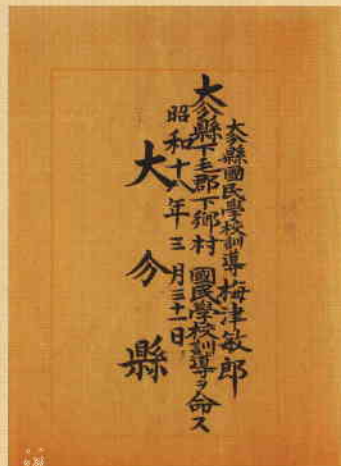 大分縣國民學校訓導 梅津敏郎
大分縣下毛郡下郷村 國民學校訓導ヲ命ス
昭和十八年三月三十一日
大分縣